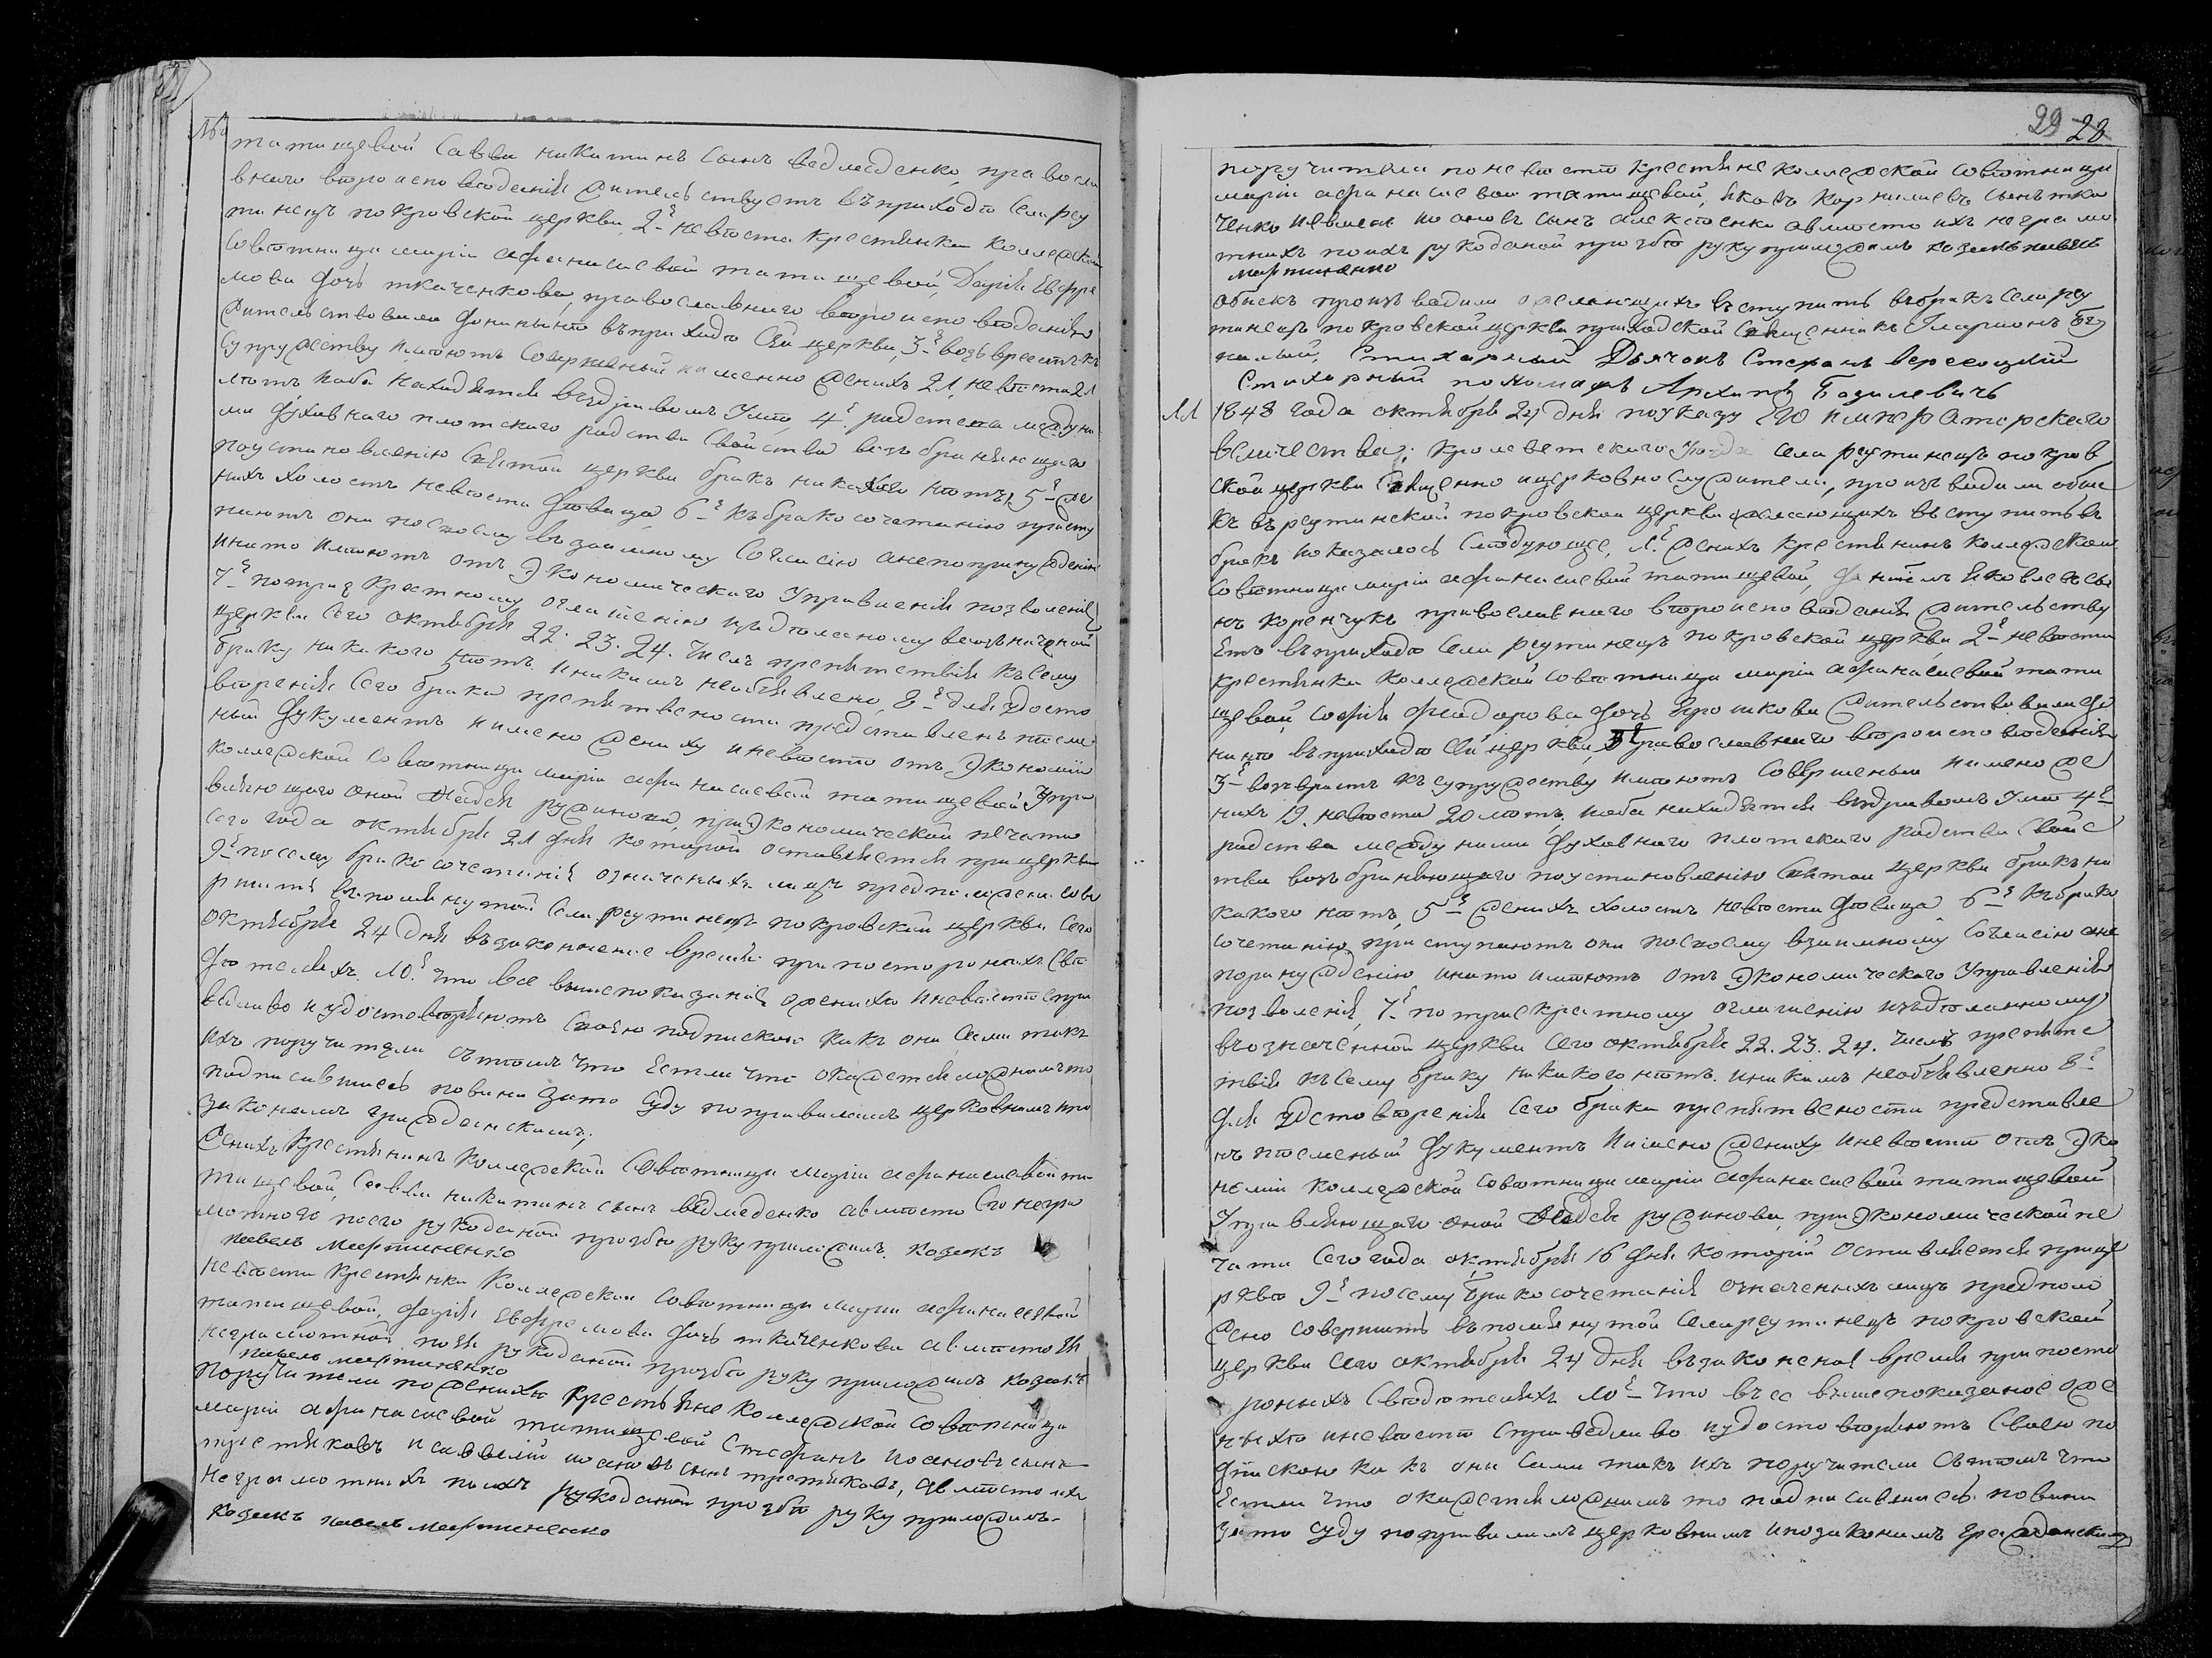 татищевой Савва никитинъ сынъ ведмеденко, правосла
внаго вѣроисповѣданія жительствуетъ въ приходѣ села реу
тинецъ покровской церкви, 2е невѣста крестянка коллежской
совѣтници маріи афанасиевой татищевой, Дарія Евфре
мова дочь ткаченкова, православнаго вѣроисповѣданія
жительствовала донинѣ въ приходѣ сей церкви, 3е возрастъ къ
супружеству имѣютъ совершеный именно женихъ 21, невѣста 21
лѣтъ иоба находятся въ здравомъ умѣ 4е родства между ни
ми духовнаго плотскаго родства свойства возбраняющаго
поустановленію святой церкви бракъ никакого нѣтъ, 5е же
нихъ холостъ невѣста дѣвица 6е къ бракосочетанію присту
паютъ они посвоему взаимному согласію а непопринужденію
инато имѣютъ отъ Экономическаго Управленія позволеніе
7е потриекрестному оглашенію издѣланому возначеной
церкви сего октября 22. 23. 24. числъ препятствія къ сему
браку никакого нѣтъ иникимъ необявлено, 8е для Досто
вѣренія сего брака препятвености представленъ писме
ный документъ имено жениху иневѣстѣ отъ Экономіи
коллежской совѣтници маріи афанасиевой татищевой Упра
вляющаго оной Авдея ружинова, приэкономической печати
сего года октября 21 дня которой оставляется прицеркви
9е посему бракосочетанія означеныхъ лицъ предположено сове
ршить въпомянутой села реутинецъ покровской церкви сего
октября 24 дня въ законноное время припосторонихъ сви
дѣтеляхъ 10е что все вышепоказаная оженихѣ иневѣстѣ спра
ведливо иудостовѣряютъ своею подпискою какъ они сами такъ
ихъ поручители сътѣмъ что Естли что окажется ложнымъ то
подписавшиесь повини зато суду поправиламъ церковнимъ ипо
законамъ гражданскимъ,
Женихъ крестянинъ коллежской совѣтници маріи афанасиевой та
тищевой, Савва никитинъ сынъ ведмеденко авмѣсто его негра
мотного поего рукоданой прозбѣ руку приложилъ козакъ
павелъ мартиненко
Невѣста крестянка Коллежской совѣтници маріи афанасиевой
татищевой, дарія Евфремова дочь ткаченкова авмѣсто ея
неграмотной поея рукоданой прозбѣ руку приложилъ козакъ
павелъ мартиненко
поручители поженихѣ крестьяне коллежской совѣтници
маріи афанасиевой татищевой Стефанъ иоановъ сынъ
третяковъ исавелій иоановъ сынъ третяковъ, авмѣсто ихъ
неграмотнихъ поихъ рукоданой прозбѣ руку приложилъ
козакъ павелъ мартиненко
29 28
поручители поневѣстѣ крестяне коллежской совѣтници
маріи афанасиевой татищевой, Яковъ Корнилиевъ сынъ тка
ченко иоановъ сынъ алексѣенко авмѣсто ихъ неграмо
тнихъ поихъ рукоданой прозбѣ руку приложилъ козакъ павелъ
мартиненко
обискъ произвадили ожелающихъ вступить въбракъ села реу
тинецъ покровской церкви приходской священникъ Иларионъ
Стихарный Дьячокъ Стефанъ вересоцкій
Стихарный пономарь Архипъ Базилевичъ
11 1848 года октября 24 дня поуказу ЕГО ИМПЕРАторскаго
величества; кролеветскаго Уезда села реутинецъ покров
ской церкви священно ицерковно служители, произвадили обис
къ въреутинской покровской церкви ожелающихъ вступить въ
бракъ иоказалось слѣдующее, 1е женихъ крестянинъ коллежской
совѣтници маріи афанасиевой татищевой, Яковлевъ сы
нъ коренчукъ православнаго вѣроисповѣданія жительству
Етъ въприходѣ села реутинецъ покровской церкви, 2е невѣста
крестянка коллежской совѣтници маріи афанасиевой тати
щевой, софія феодорова дочь жительствовала до
нинѣ въприходѣ сей церкви, православнаго вѣроисповѣданія
3е возврастъ къ супружеству имѣютъ совершеный имено же
нихъ 19. невѣста 20 лѣтъ, иоба находятся въздравомъ Умѣ 4е
родства между ними духовнаго плотскаго родства свойс
тва возбраняющаго поустановленію святой церкви бракъ ни
какого нѣтъ, 5е женихъ холостъ невѣста дѣвица 6е къ брако
сочетанію приступаютъ они посвоему взаимному согласію ане
попринужденію инато имѣютъ отъ Экономическаго Управленія
позволенія, 7е потриекратному оглашенію издѣланному
возначенной церкви сего октября 22. 23. 24. числъ препятс
твія къ сему браку никакого нѣтъ. иникимъ необявленно 8е
для Удстовѣренія сего брака препятвености представле
нъ писменый документъ имено жениху иневѣстѣ отъ Эко
номіи коллежской совѣтници маріи афанасиевой татищевой
Управляющаго оной Авдея ружинова, приэкономической пе
чати сего года октября 16 дня которій оставляется прице
рквѣ 9е посему бракосочетанія означеныхъ лицъ предполо
жено совершить въпомянутой села реутинецъ покровской
церкви сего октября 24 дня възаконеноя время припосто
роныхъ свидѣтеляхъ 10е что въсе вышепоказаное оже
нихѣ иневѣстѣ справедливо иудостовѣряютъ своею по
дпискою какъ они сами такъ ихъ поручители сътѣмъ что
Естли что окажетсяложнимъ то подписавшиесь повини
зато суду поправиламъ церковнимъ ипозаконамъ гражданскимъ